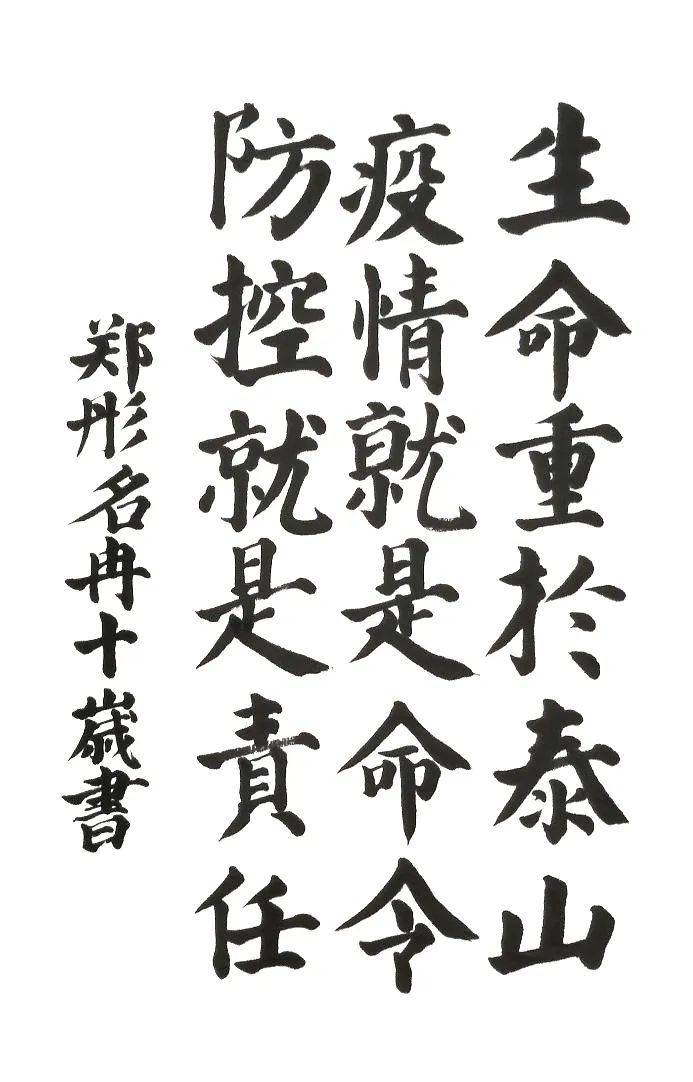 生命重於泰山
疫情就是命令
防控就是責任
郑彤名冉十歲書